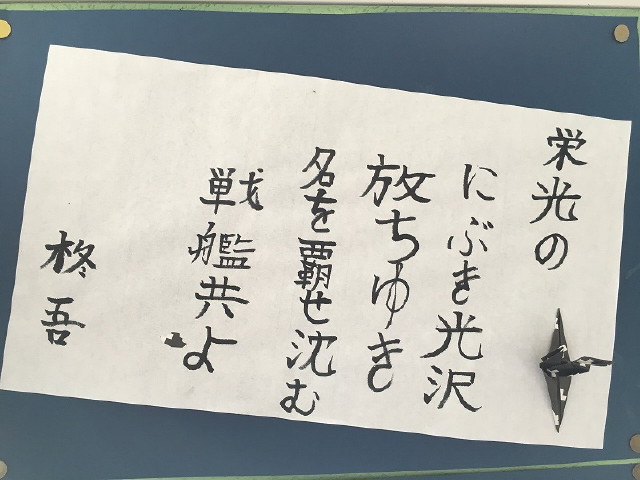 栄光の
にぶき光沢
放ちゆき
名を覇せ沈む
戦艦共よ
柊吾